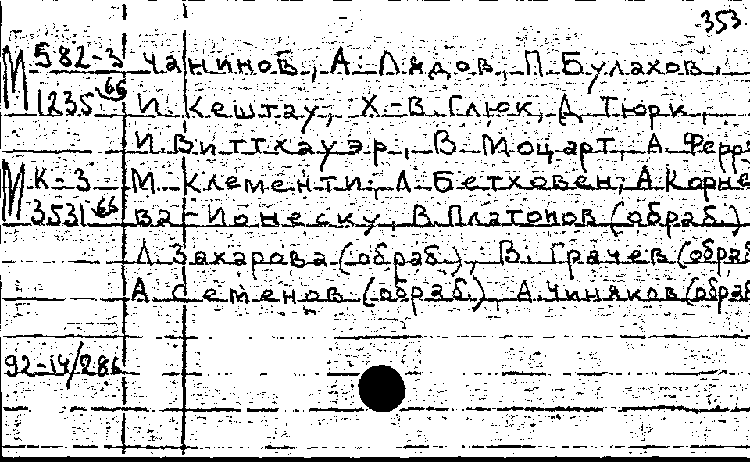 353
М 582-3 Чанинов, А. Лядов, П. Булахов.
1235 66 И. Кештау, Х.-В. Глюк, Д. Тюрк,
И. Виттхауэр, В. Моцарт, А. Ферра
М К-3 М. Клементи, Л. Бетховен, А. Корне
3531 66 ва-Ионеску, В. Платонов (обраб.)
Л. Захарова (обраб.), В. Грачев (обраб
А. Семенов (обраб.), А. Чиняков (обраб
92-14/286